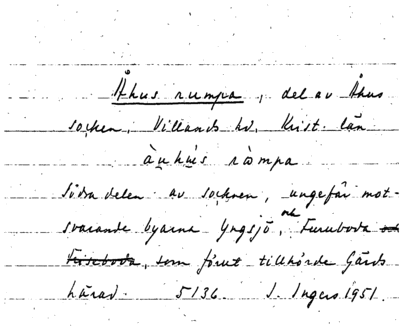 Åhus rumpa, del av Åhus
socken, Villands hd, Krist. län
àu̯hu̯s ròmpa
Södra delen av socknen, ungefär mot-
svarande byarna Yngsjö, och Furuboda
, som förut tillhörde Gärds
härad. 5136. I. Ingers 1951.